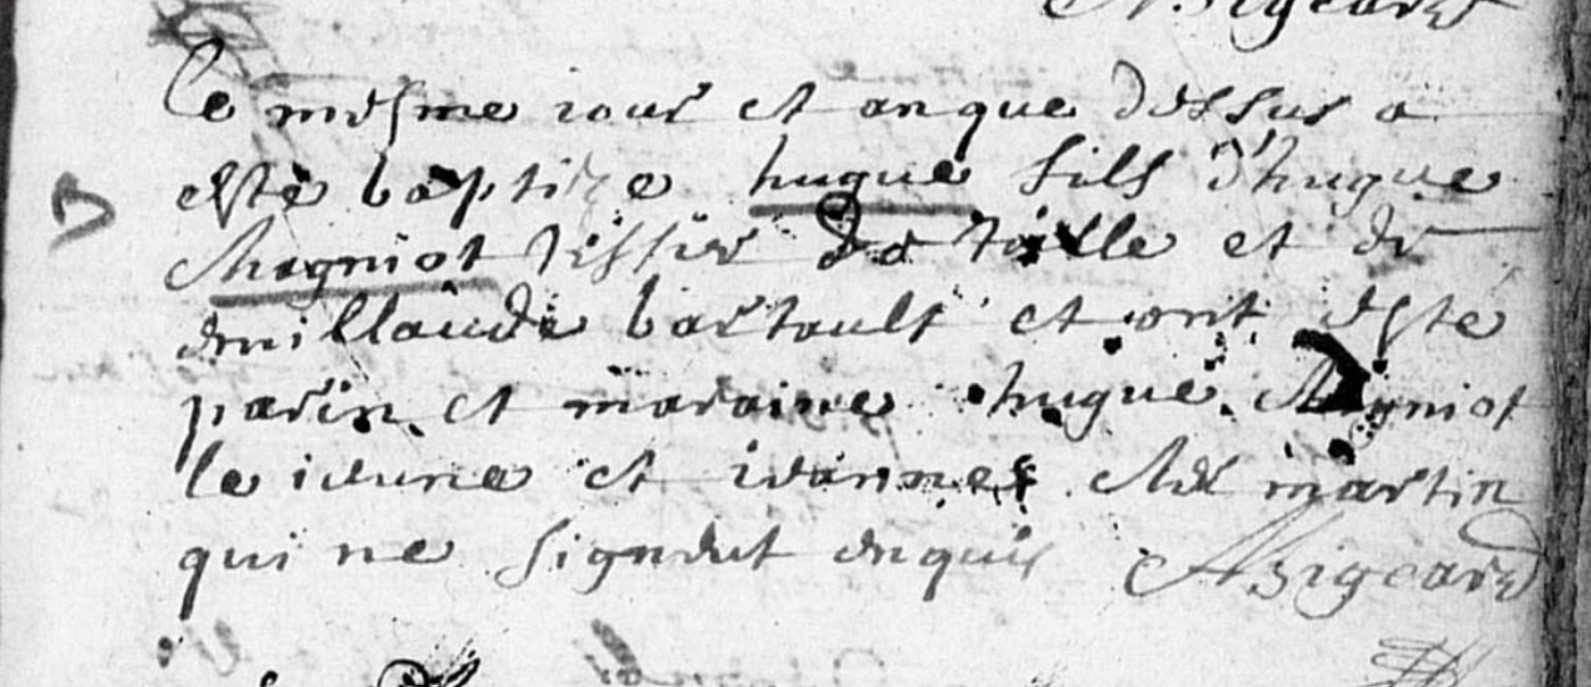 A. Zigeard
Le mesme iour et an que dessus a
esté baptize hugue fils d'hugue
Chagniot tissier de toille et de
emillande bartault et ont esté
parin et maraine hugue Chagniot
le ieune et ieanne martin
qui ne signent enquis AZigeard